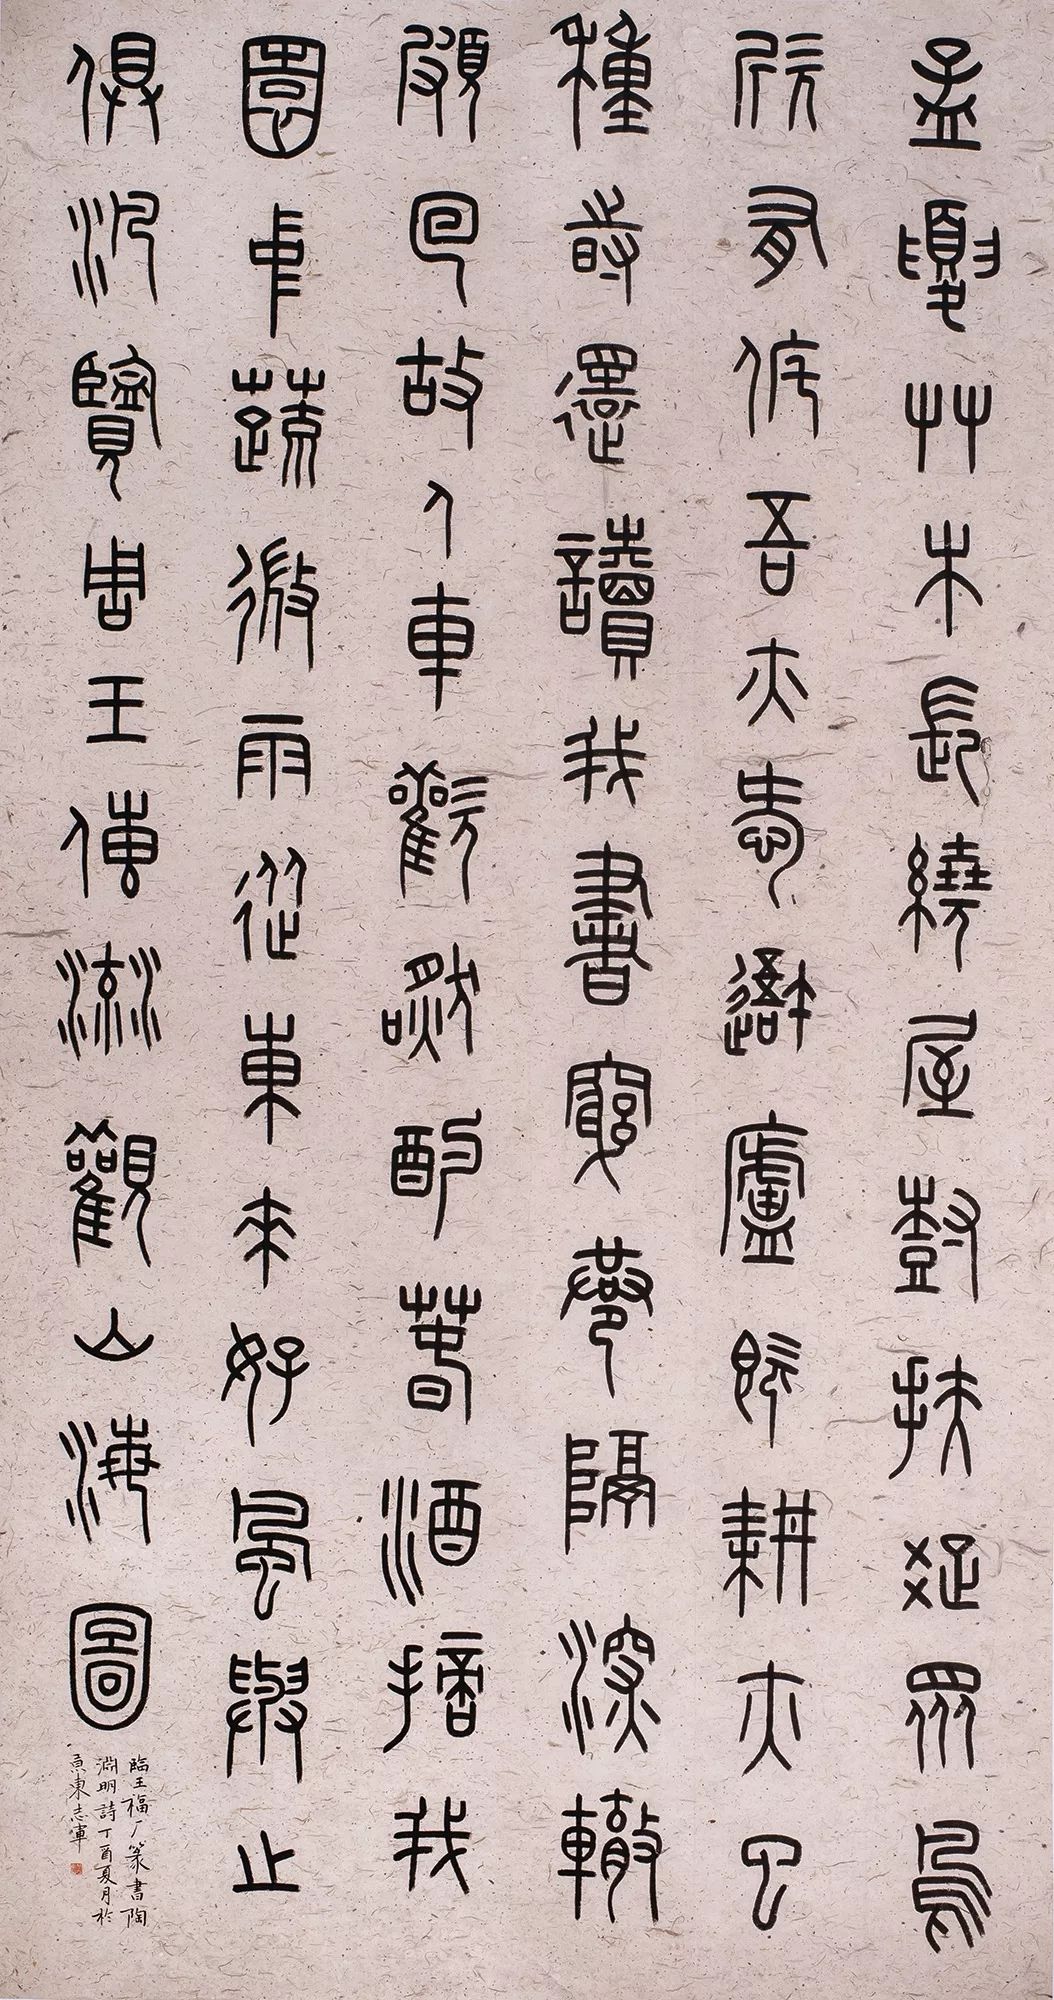 孟夏艸木長繞屋尌扶疏眾鳥
欣有侂吾亦㤅吾廬既耕亦已
種時還讀我書窮巷隔深轍
頗回故人車歡然酌春酒摘我
園中蔬微雨從東來好風與止
俱汎覽周王傳流觀山海圖
臨王福厂篆書陶
淵明詩丁酉夏月於
京東志軍